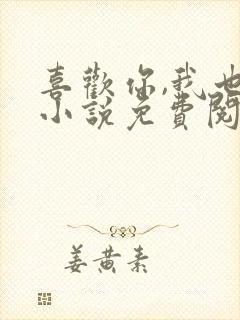 喜歡你,我也
小說免費閱
姜黃素